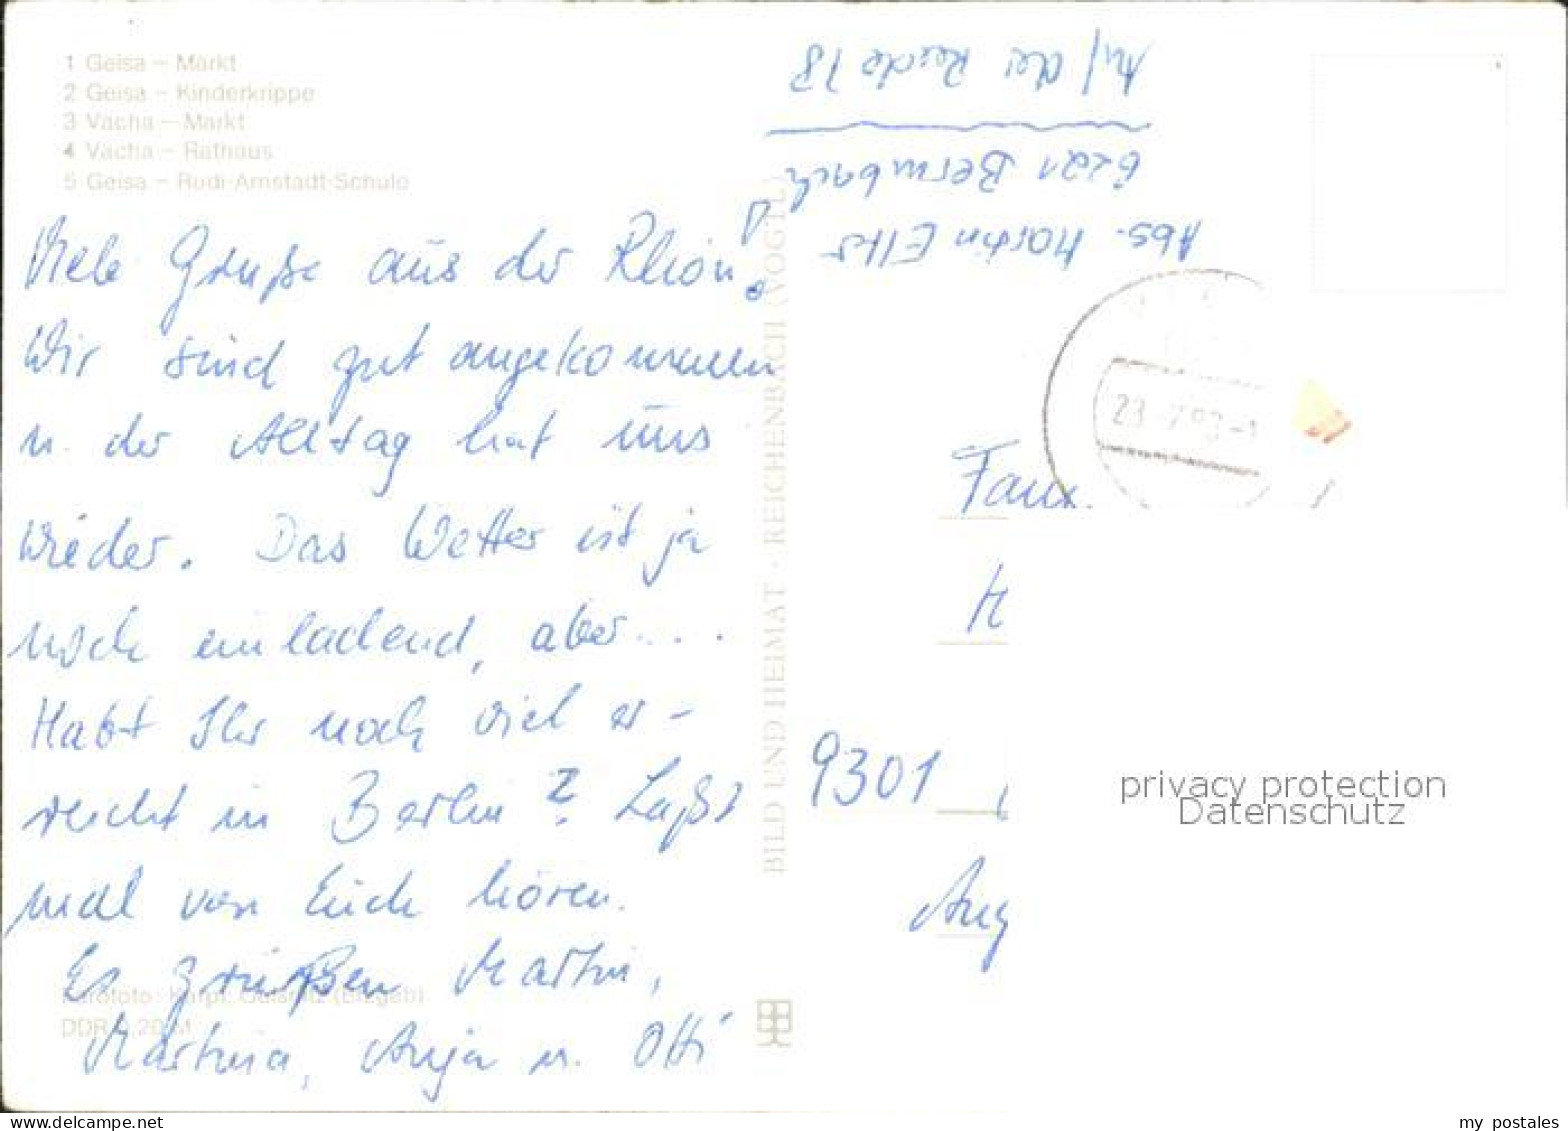 1 Geisa – Markt
2 Geisa – Kinderkrippe
3 Vacha – Markt
4 Vacha – Rathaus
5 Geisa – Rudi-Arnstadt-Schule
Viele Grüße aus der Rhön!
Wir sind gut angekommen
u. der Alltag hat uns
wieder. Das Wetter ist ja
noch einladend, aber....
Habt Ihr noch viel er-
reicht in Berlin? Laßt
mal von Euch hören.
Es grüßen Martin,
Martina, Anja u. Otti
(Erzgeb)
DDR 0,20 M
BILD UND HEIMAT · REICHENBACH (VOGTL)
Abs. Martin
6221 Bermbach
Auf der 18
Fam.
9301
privacy protection
Datenschutz
my postales